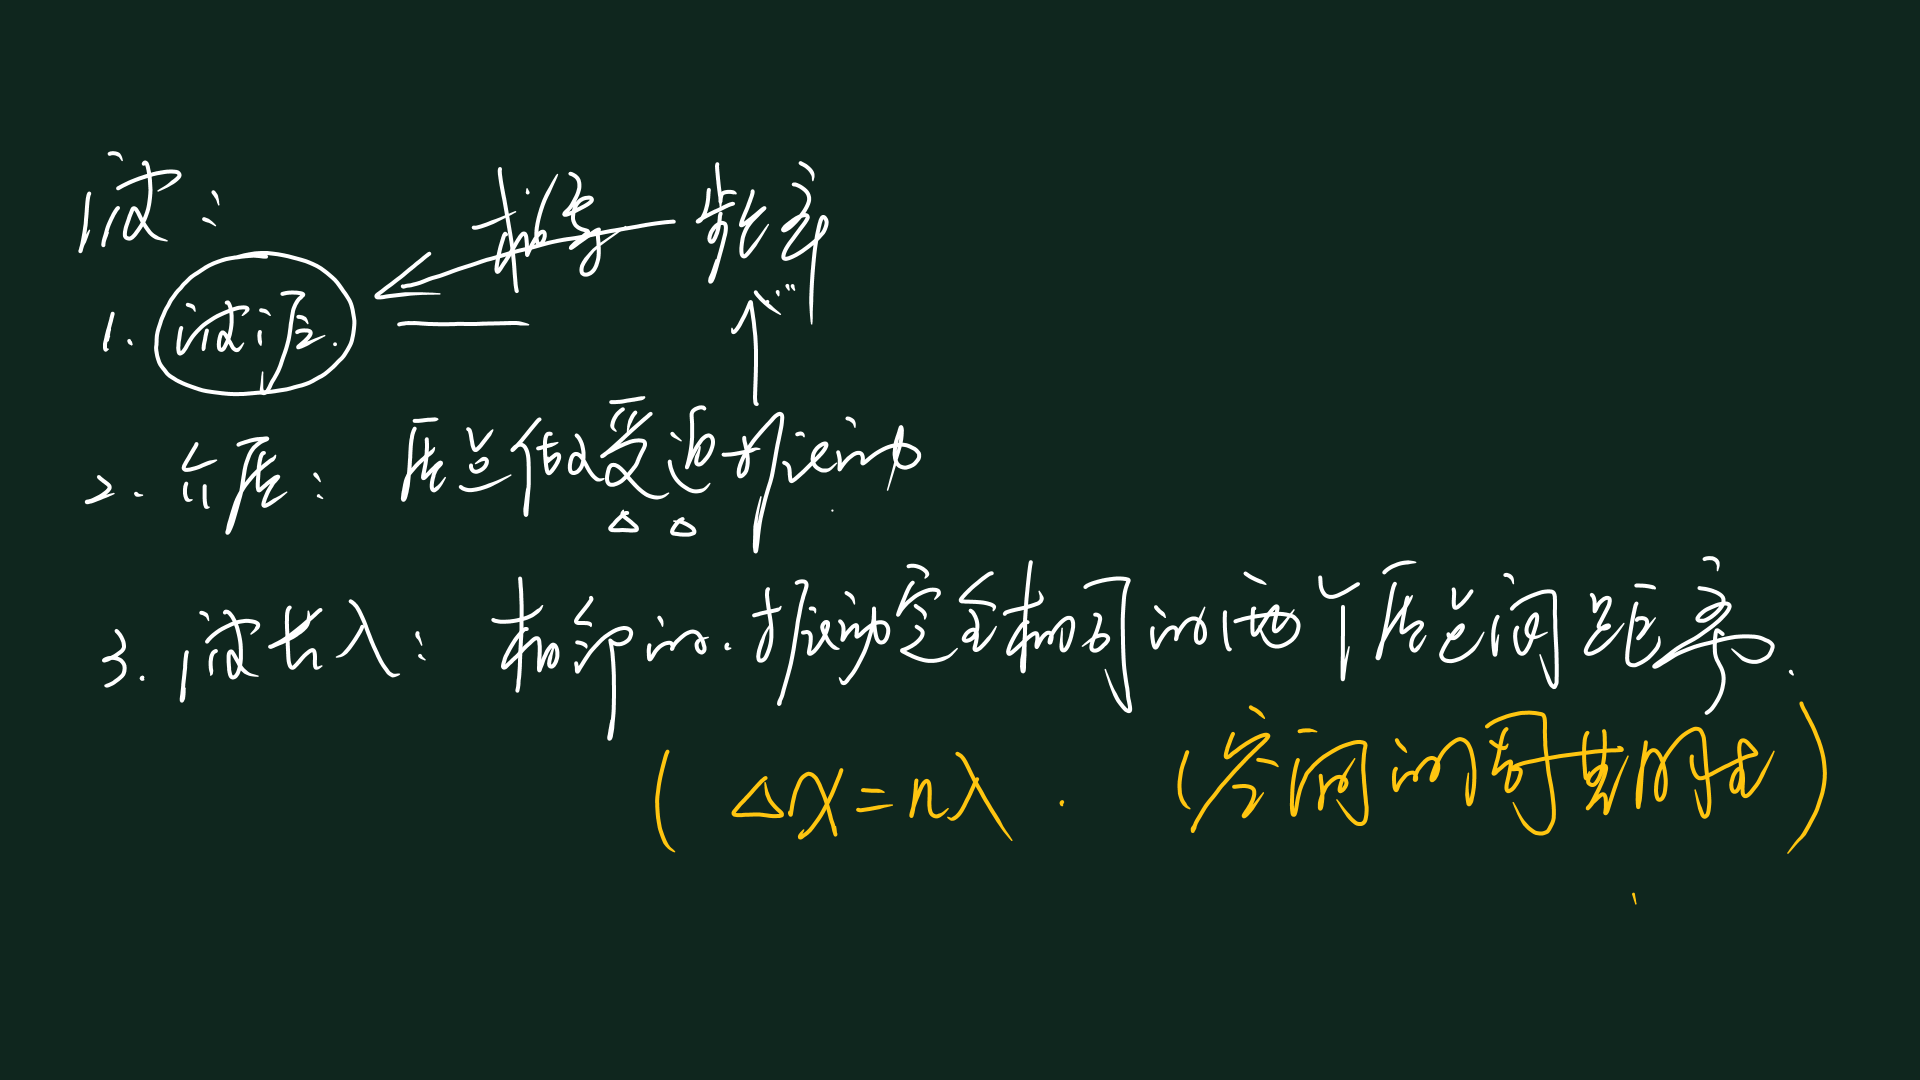 波:
相等 频率
1. 波源.
2. 介质: 质点做受迫振动
3. 波长λ: 相邻的.振动完全相同的两个质点间距离.
(Δx=nλ. (空间的周期性)